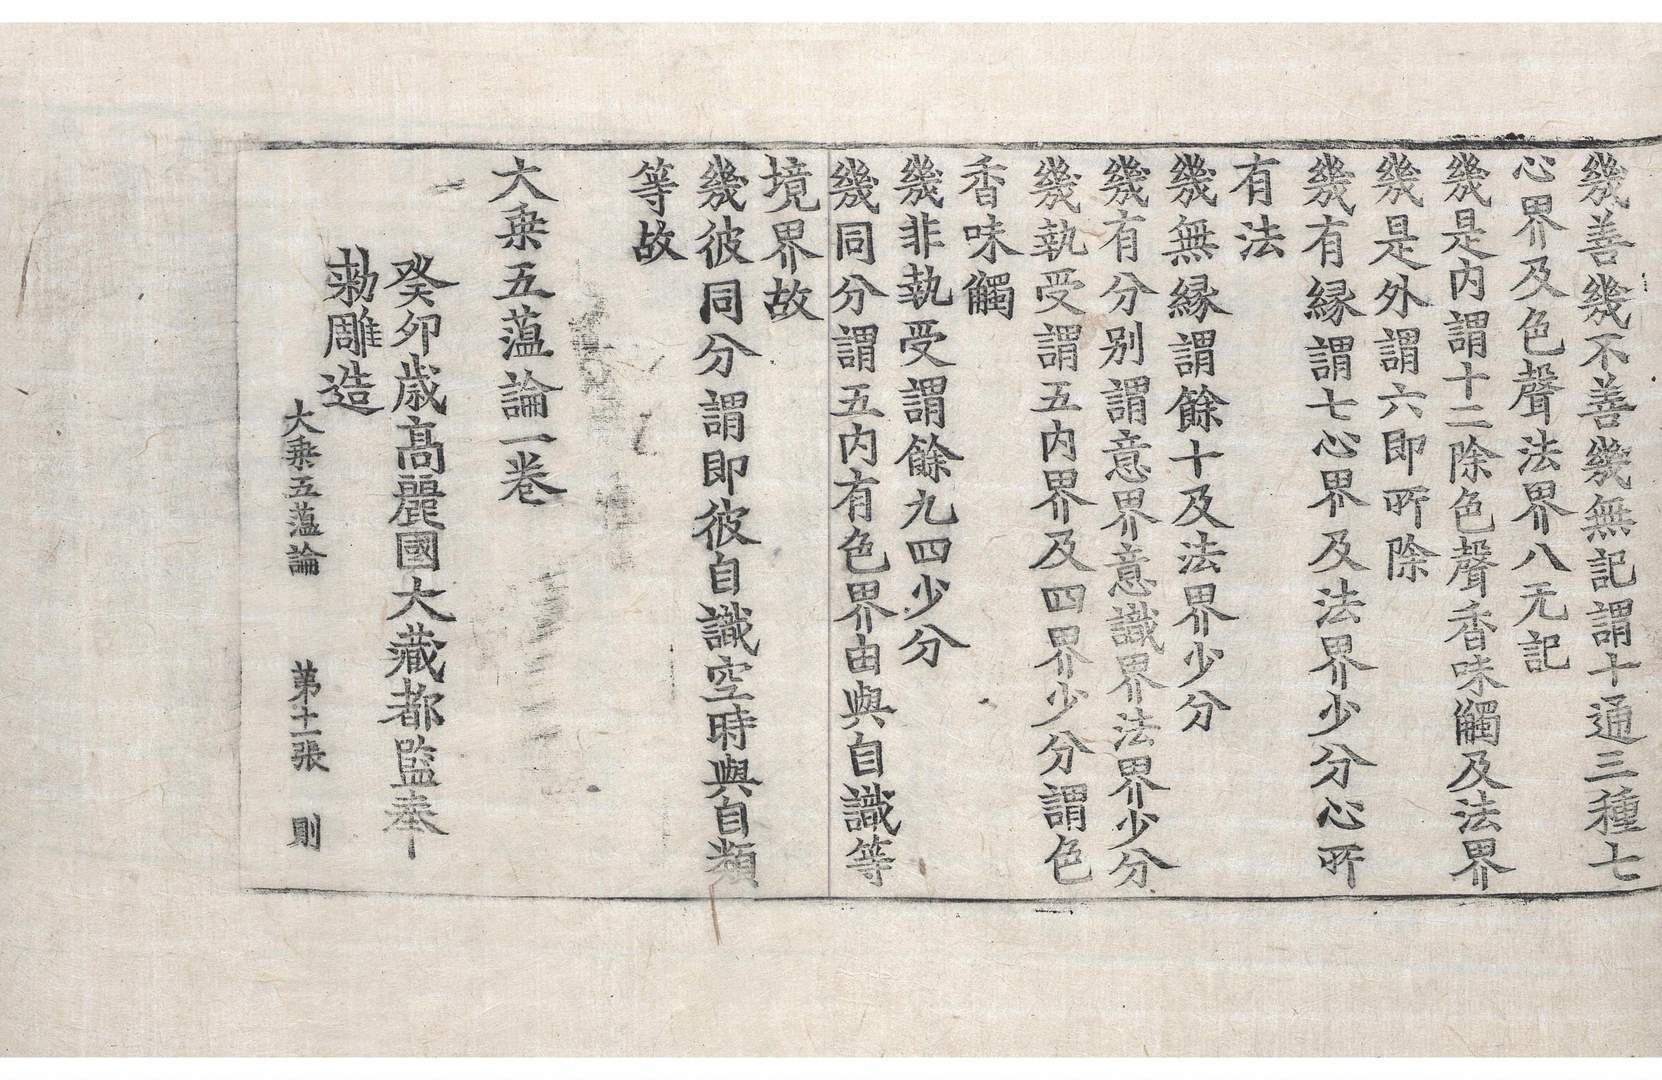 幾善幾不善幾無記謂十通三種七
心界及色聲法界八无記
幾是内謂十二除色聲香味觸及法界
幾是外謂六即所除
幾有縁謂七心界及法界少分心所
有法
幾無縁謂餘十及法界少分
幾有分别謂意界意識界法界少分
幾執受謂五内界及四界少分謂色
香味觸
幾非執受謂餘九四少分
幾同分謂五内有色界由與自識等
境界故
幾彼同分謂即彼自識空時與自類
等故
大乗五蕰論一卷
癸卯歳髙麗國大藏都監奉
勑雕造
大乗五蕰論 第十二張 則